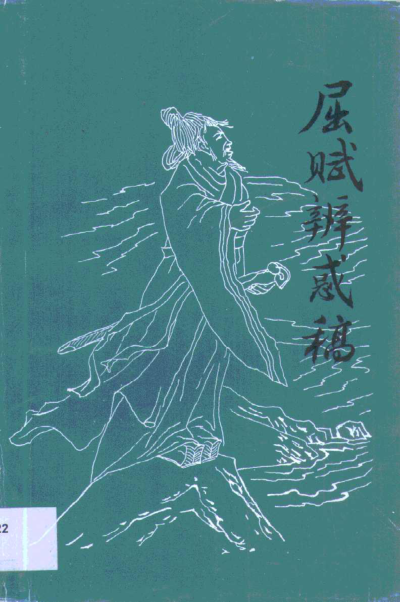 屈赋辨惑稿
22